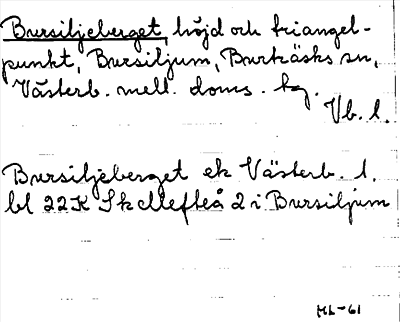 Bursiljeberget, höjd och triangel-
punkt, Bursiljum, Burträsks sn,
Västerb. mell. doms. tg.
Vb. l.
Bursiljeberget ek Västerb. l.
bl 22K Skellefteå 2 i Bursiljum
HL-61